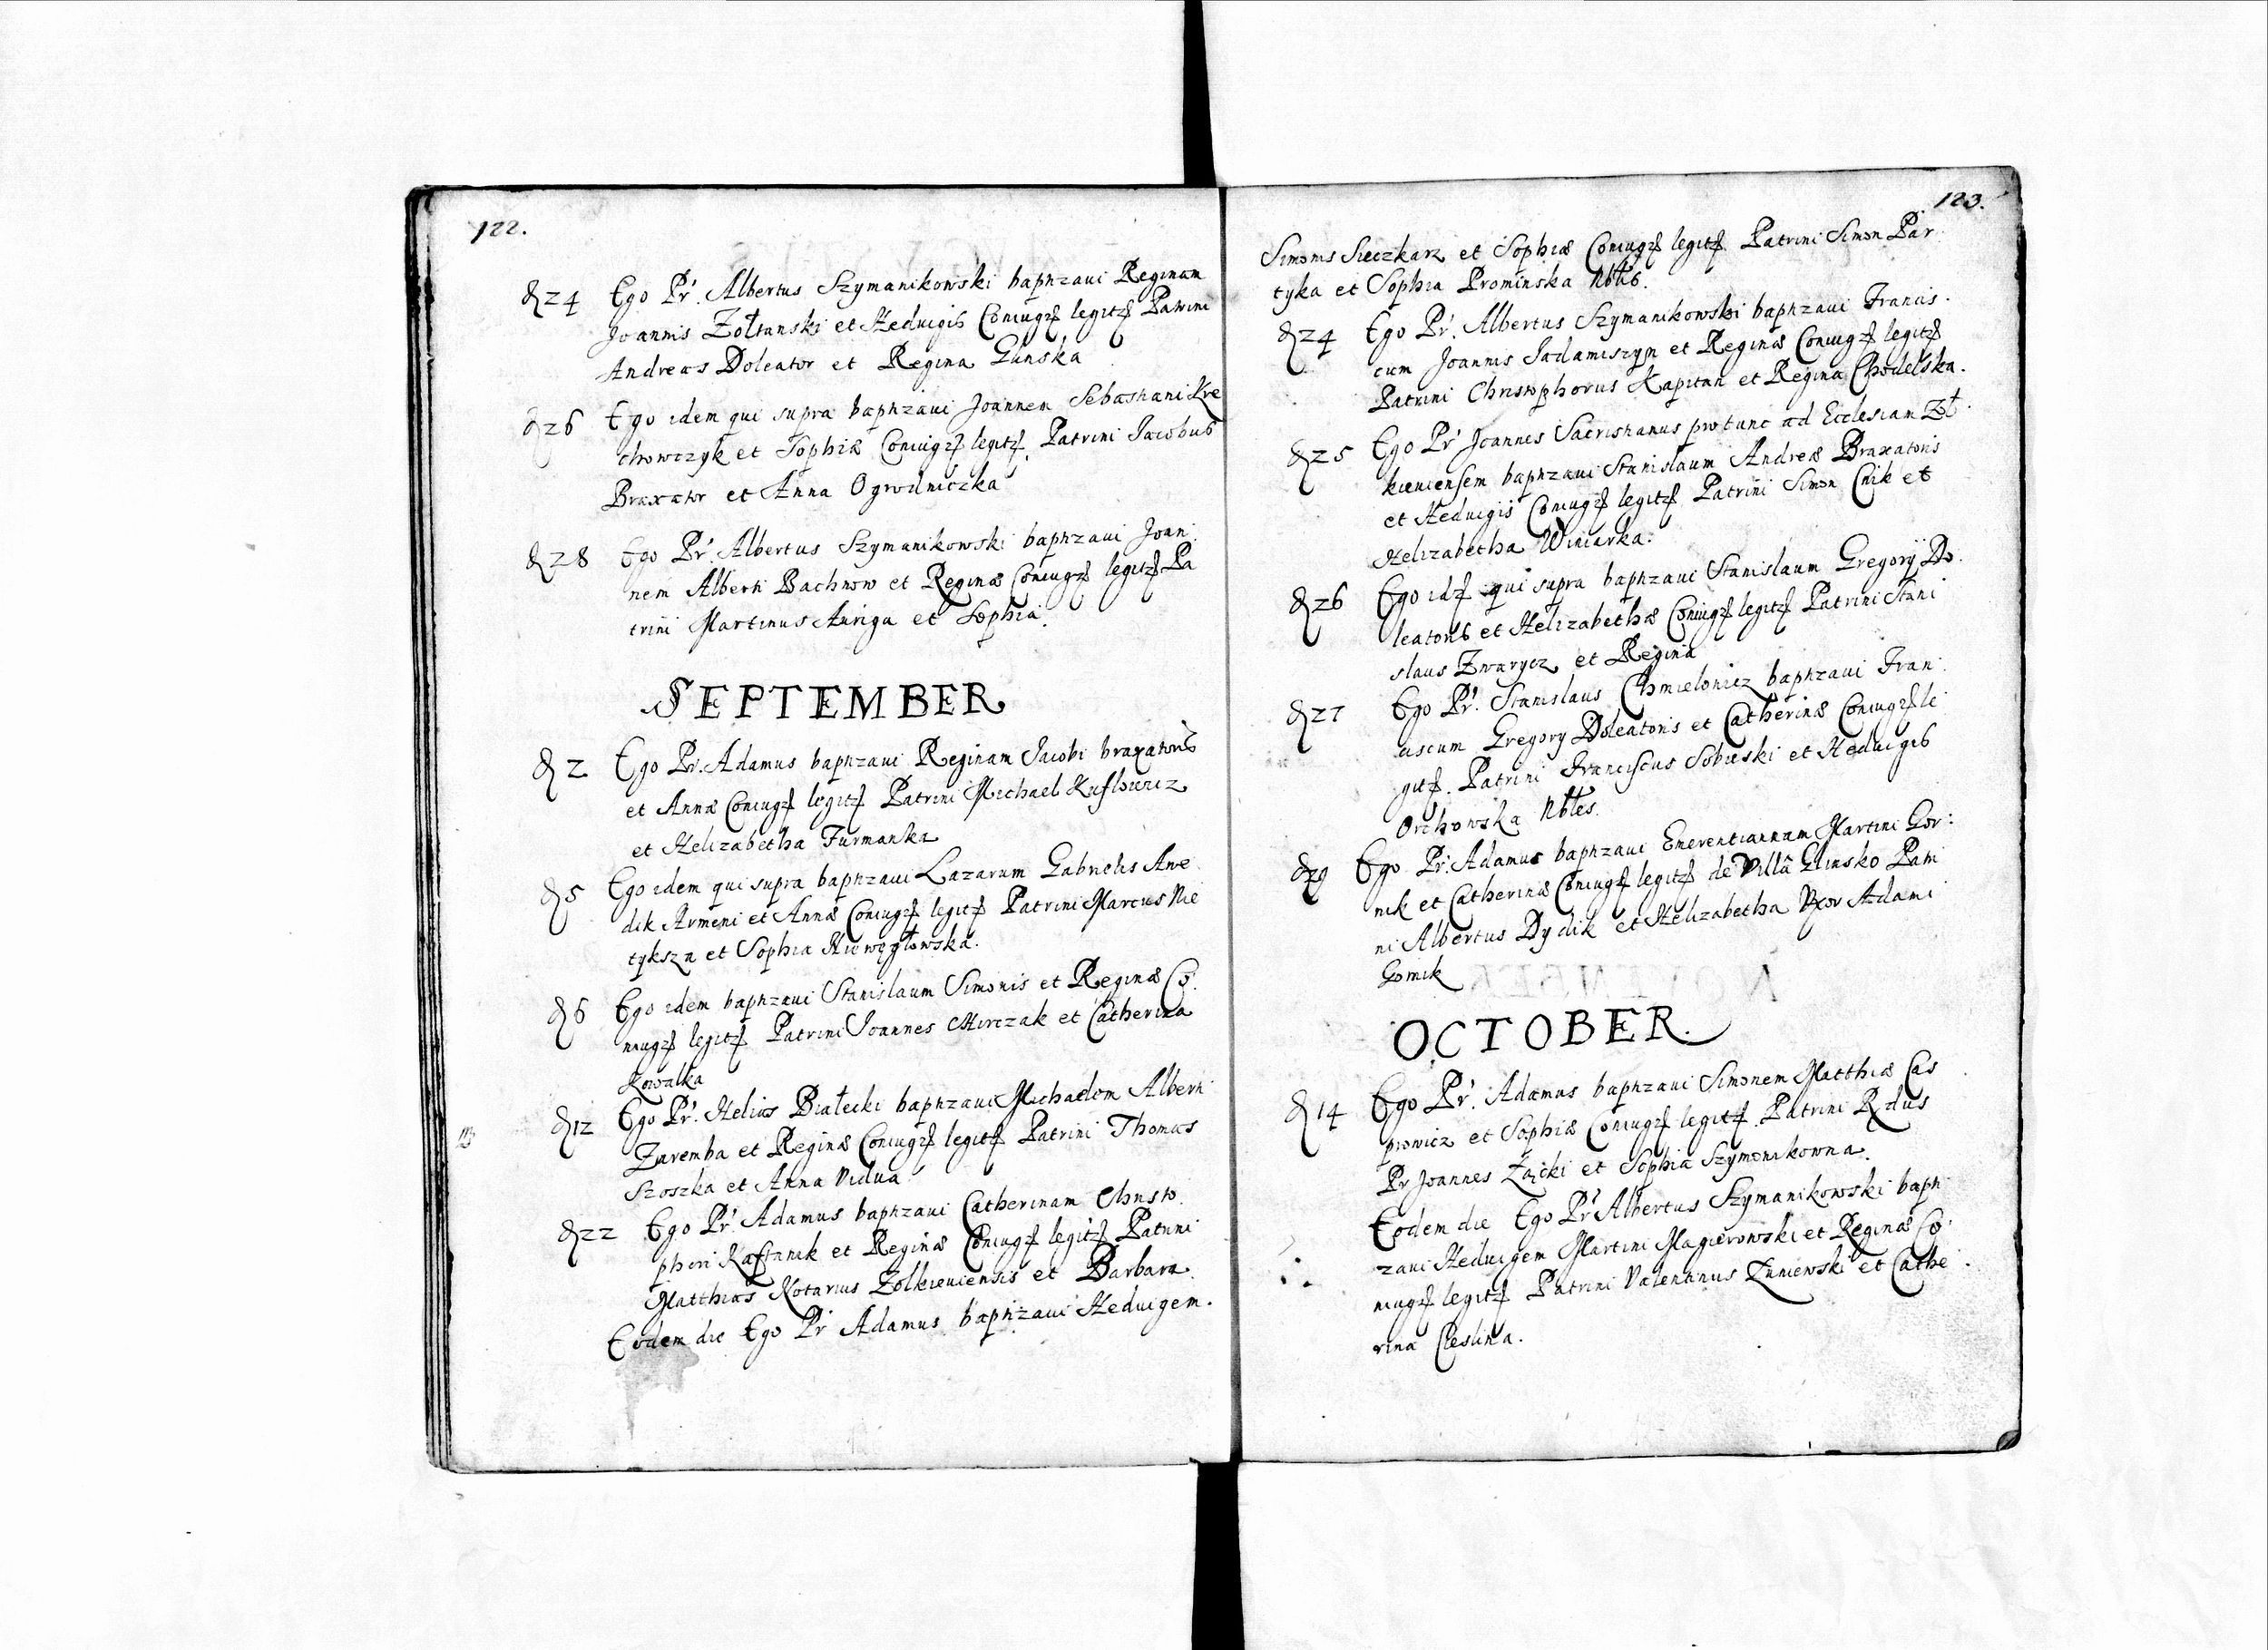 122.
d 24 Ego Pr. Albertus Szymanikowski baptizaui Reginam
Joannis Zołtanski et Heduigis Coniugū legitū Patrini
Andreas Doleator et Regina Glinska
d 26 Ego idem qui supra baptizaui Joannem Sebastiani Kre
chowczyk et Sophiæ Coniugū legitū Patrini Jacobus
Braxator et Anna Ogrodniczka
d 28 Ego Pr. Albertus Szymanikowski baptizaui Joan
nem Alberti Bachnow et Reginæ Coniugū legitū Pa
trini Martinus Auriga et Sophia.
SEPTEMBER
d 2 Ego Pr. Adamus baptizaui Reginam Jacobi braxatoris
et Annæ Coniugū legitū Patrini Michael Kuslowicz
et Helizabetha Furmanka
d 5 Ego idem qui supra baptizaui Lazarum Gabrielis Awe
dik Armeni et Annæ Coniugū legitū Patrini Marcus Nie
tyksza et Sophia Niewęgłowska.
d 6 Ego idem baptizaui Stanislaum Simonis et Reginæ Co
niugū legitū Patrini Joannes Mirczak et Catherina
Kowalka
d 12 Ego Pr. Helias Białecki baptizaui Michaelem Alberti
Zaremba et Reginæ Coniugū legitū Patrini Thomas
Szoszka et Anna Vidua
d 22 Ego Pr. Adamus baptizaui Catherinam Christo
phori Kaftanik et Reginæ Coniugū legitū Patrini
Matthias Notarius Zolkieuiensis et Barbara.
Eodem die Ego Pr Adamus baptizaui Heduigem.
123.
Simonis Sieczkarz et Sophiæ Coniugū legitū Patrini Simon Par
tyka et Sophia Prominska Nbtłs.
d 24 Ego Pr. Albertus Szymanikowski baptizaui Francis
cum Joannis Sadamiszyn et Reginæ Coniugū legitū
Patrini Christophorus Kapitan et Regina Chodelska.
d 25 Ego Pr Joannes Sacristianus protunc ad Ecclesiam Zoł
kieuiensem baptizaui Stanislaum Andreæ Braxatoris
et Heduigis Coniugū legitū Patrini Simon Cnik et
Helizabetha Winiarka.
d 26 Ego idē qui supra baptizaui Stanislaum Gregorÿ Do
leatoris et Helizabethæ Coniugū legitū Patrini Stani
slaus Zwarycz et Regina
d 27 Ego Pr. Stanislaus Chmielowicz baptizaui Fran
ciscum Gregory Doleatoris et Catherinæ Coniugū le
gitū. Patrini Franciscus Sobieski et Heduigis
Orchowska Nbtłes.
d 29 Ego Pr. Adamus baptizaui Emerentiannam Martini Gor:
nik et Catherinæ Coniugū legitū de Villâ Glinsko Patri
ni Albertus Dydik et Helizabetha Vxor Adami
Gornik
OCTOBER.
d 14 Ego Pr. Adamus baptizaui Simonem Matthiæ Cas
prowicz et Sophiæ Coniugū legitū Patrini Rdus
Pr Joannes Zaicki et Sophia Szymonikowna.
Eodem die Ego Pr Albertus Szymanikowski bapti
zaui Heduigem Martini Magierowski et Reginæ Co
niugū legitū Patrini Valentinus Zuniewski et Cathe
rina Cieslina.